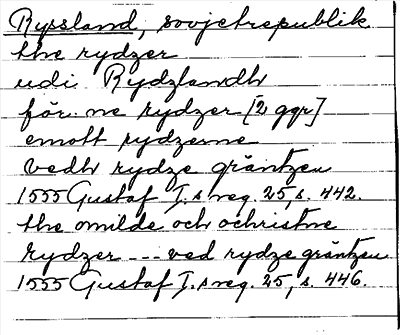 Ryssland, sovjetrepublik
the rydzer
udi Rydzlandh
för: ne rydzer [2 ggr]
emott rydzerne
vedh rydze gräntzen
1555 Gustaf I.s reg. 25, s. 442.
the omilde och ochristne
rydzer --- ved rydze gräntzen
1555 Gustaf I.s reg. 25, s. 446.